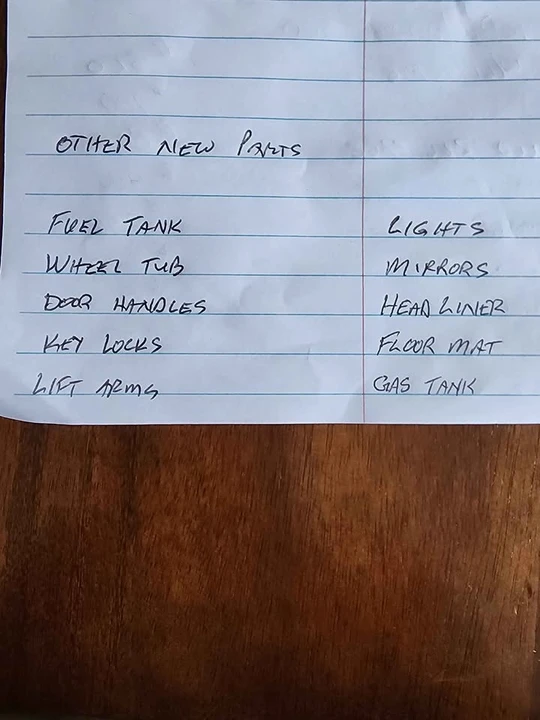 OTHER NEW PARTS
FUEL TANK
WHEEL TUB
DOOR HANDLES
KEY LOCKS
LIFT ARMS
LIGHTS
MIRRORS
HEADLINER
FLOOR MAT
GAS TANK